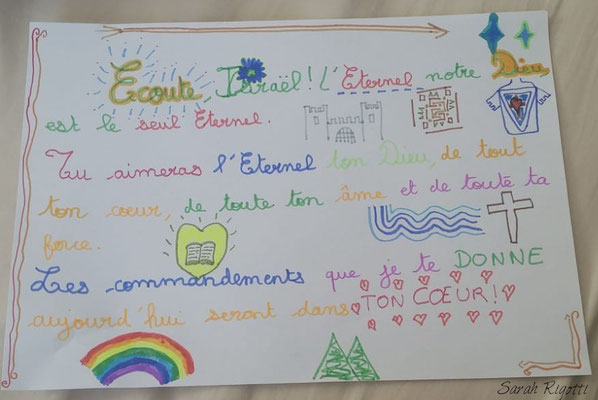 Ecoute Israël! L'Eternel notre Dieu,
est le seul Eternel.
Tu aimeras l'Eternel ton Dieu, de tout
ton coeur, de toute ton âme et de toute ta
force.
Les commandements que je te DONNE
aujourd'hui seront dans TON COEUR!
Sarah Rigotti